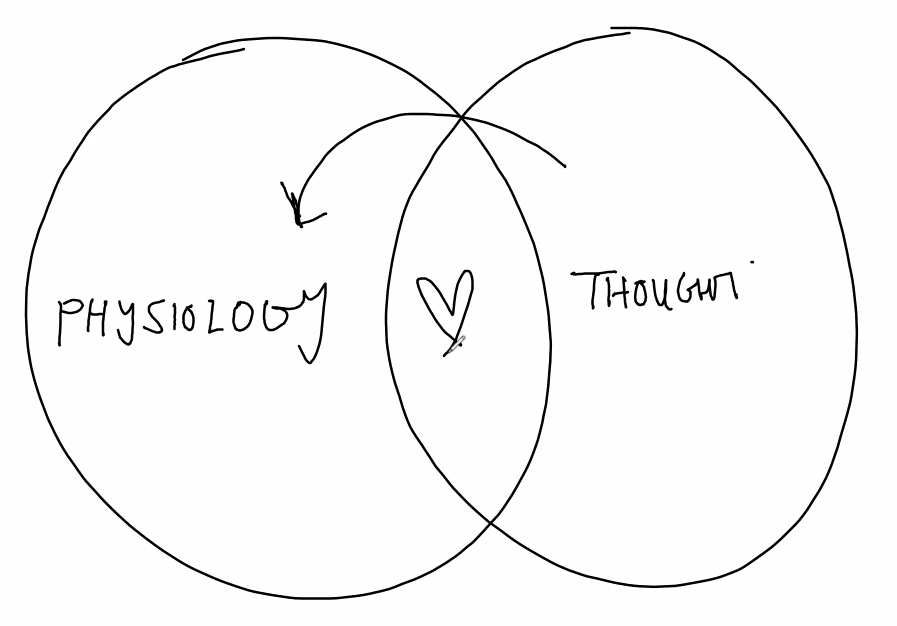 PHYSIOLOGY
THOUGHT